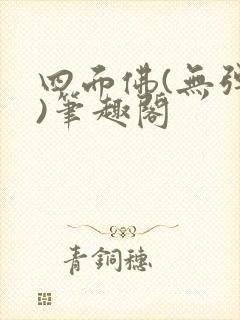 四面佛(無彈
)筆趣閣
青銅穗